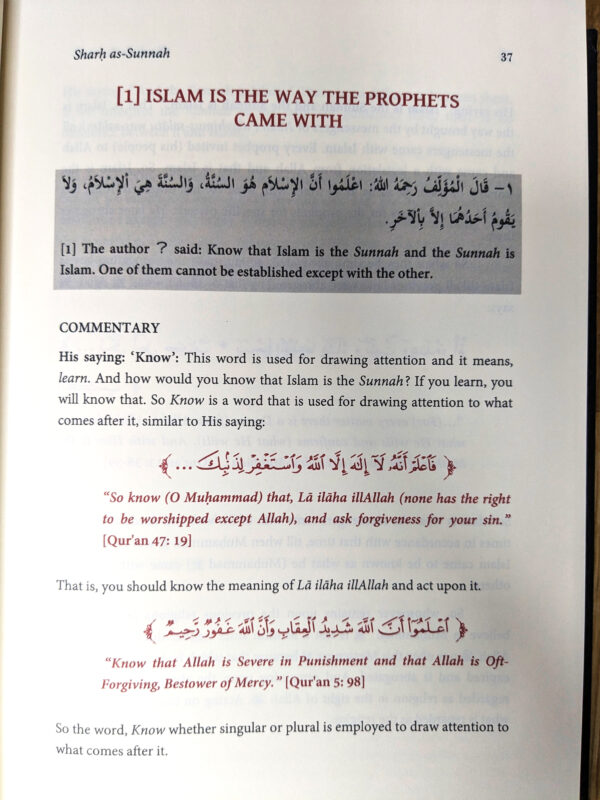 Sharḥ as-Sunnah 37
[1] ISLAM IS THE WAY THE PROPHETS
CAME WITH
١– قَالَ الْمُؤَلِّفُ رَحِمَهُ اللهُ: اعْلَمُوا أَنَّ الإِسْلَام هُوَ السُنَّةُ، وَالسُنَّة هِيَ الْإِسْلَامُ، وَلَا
يَقُومُ أَحَدُهُمَا إِلَّا بِالآخَرِ.
[1] The author ? said: Know that Islam is the Sunnah and the Sunnah is
Islam. One of them cannot be established except with the other.
COMMENTARY
His saying: ‘Know’: This word is used for drawing attention and it means,
learn. And how would you know that Islam is the Sunnah? If you learn, you
will know that. So Know is a word that is used for drawing attention to what
comes after it, similar to His saying:
﴿ فَاعْلَمْ أَنَّهُ لَا إِلَهَ إِلَّا اللَّهُ وَاسْتَغْفِرْ لِذَنْبِكَ ... ﴾
“So know (O Muḥammad) that, Lā ilāha illAllah (none has the right
to be worshipped except Allah), and ask forgiveness for your sin.”
[Qur'an 47: 19]
That is, you should know the meaning of Lā ilāha illAllah and act upon it.
﴿ اعْلَمُوا أَنَّ اللَّهَ شَدِيدُ الْعِقَابِ وَأَنَّ اللَّهَ غَفُورٌ رَّحِيمٌ ﴾
“Know that Allah is Severe in Punishment and that Allah is Oft-
Forgiving, Bestower of Mercy.” [Qur'an 5: 98]
So the word, Know whether singular or plural is employed to draw attention to
what comes after it.